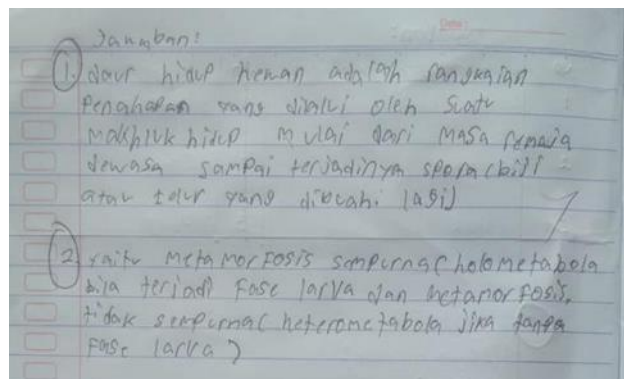 Jawaban:
1. daur hidup hewan adalah rangkaian
Penahapan yang dialui oleh suatu
makhluk hidup mulai dari masa remaja
dewasa sampai terjadinya spora (biji
atau telur yang dibuahi lagi)
2. yaitu metamorfosis sempurna (holometabola
bila terjadi fase larva dan metamorfosis,
tidak sempurna (heterometabola jika tanpa
fase larva)